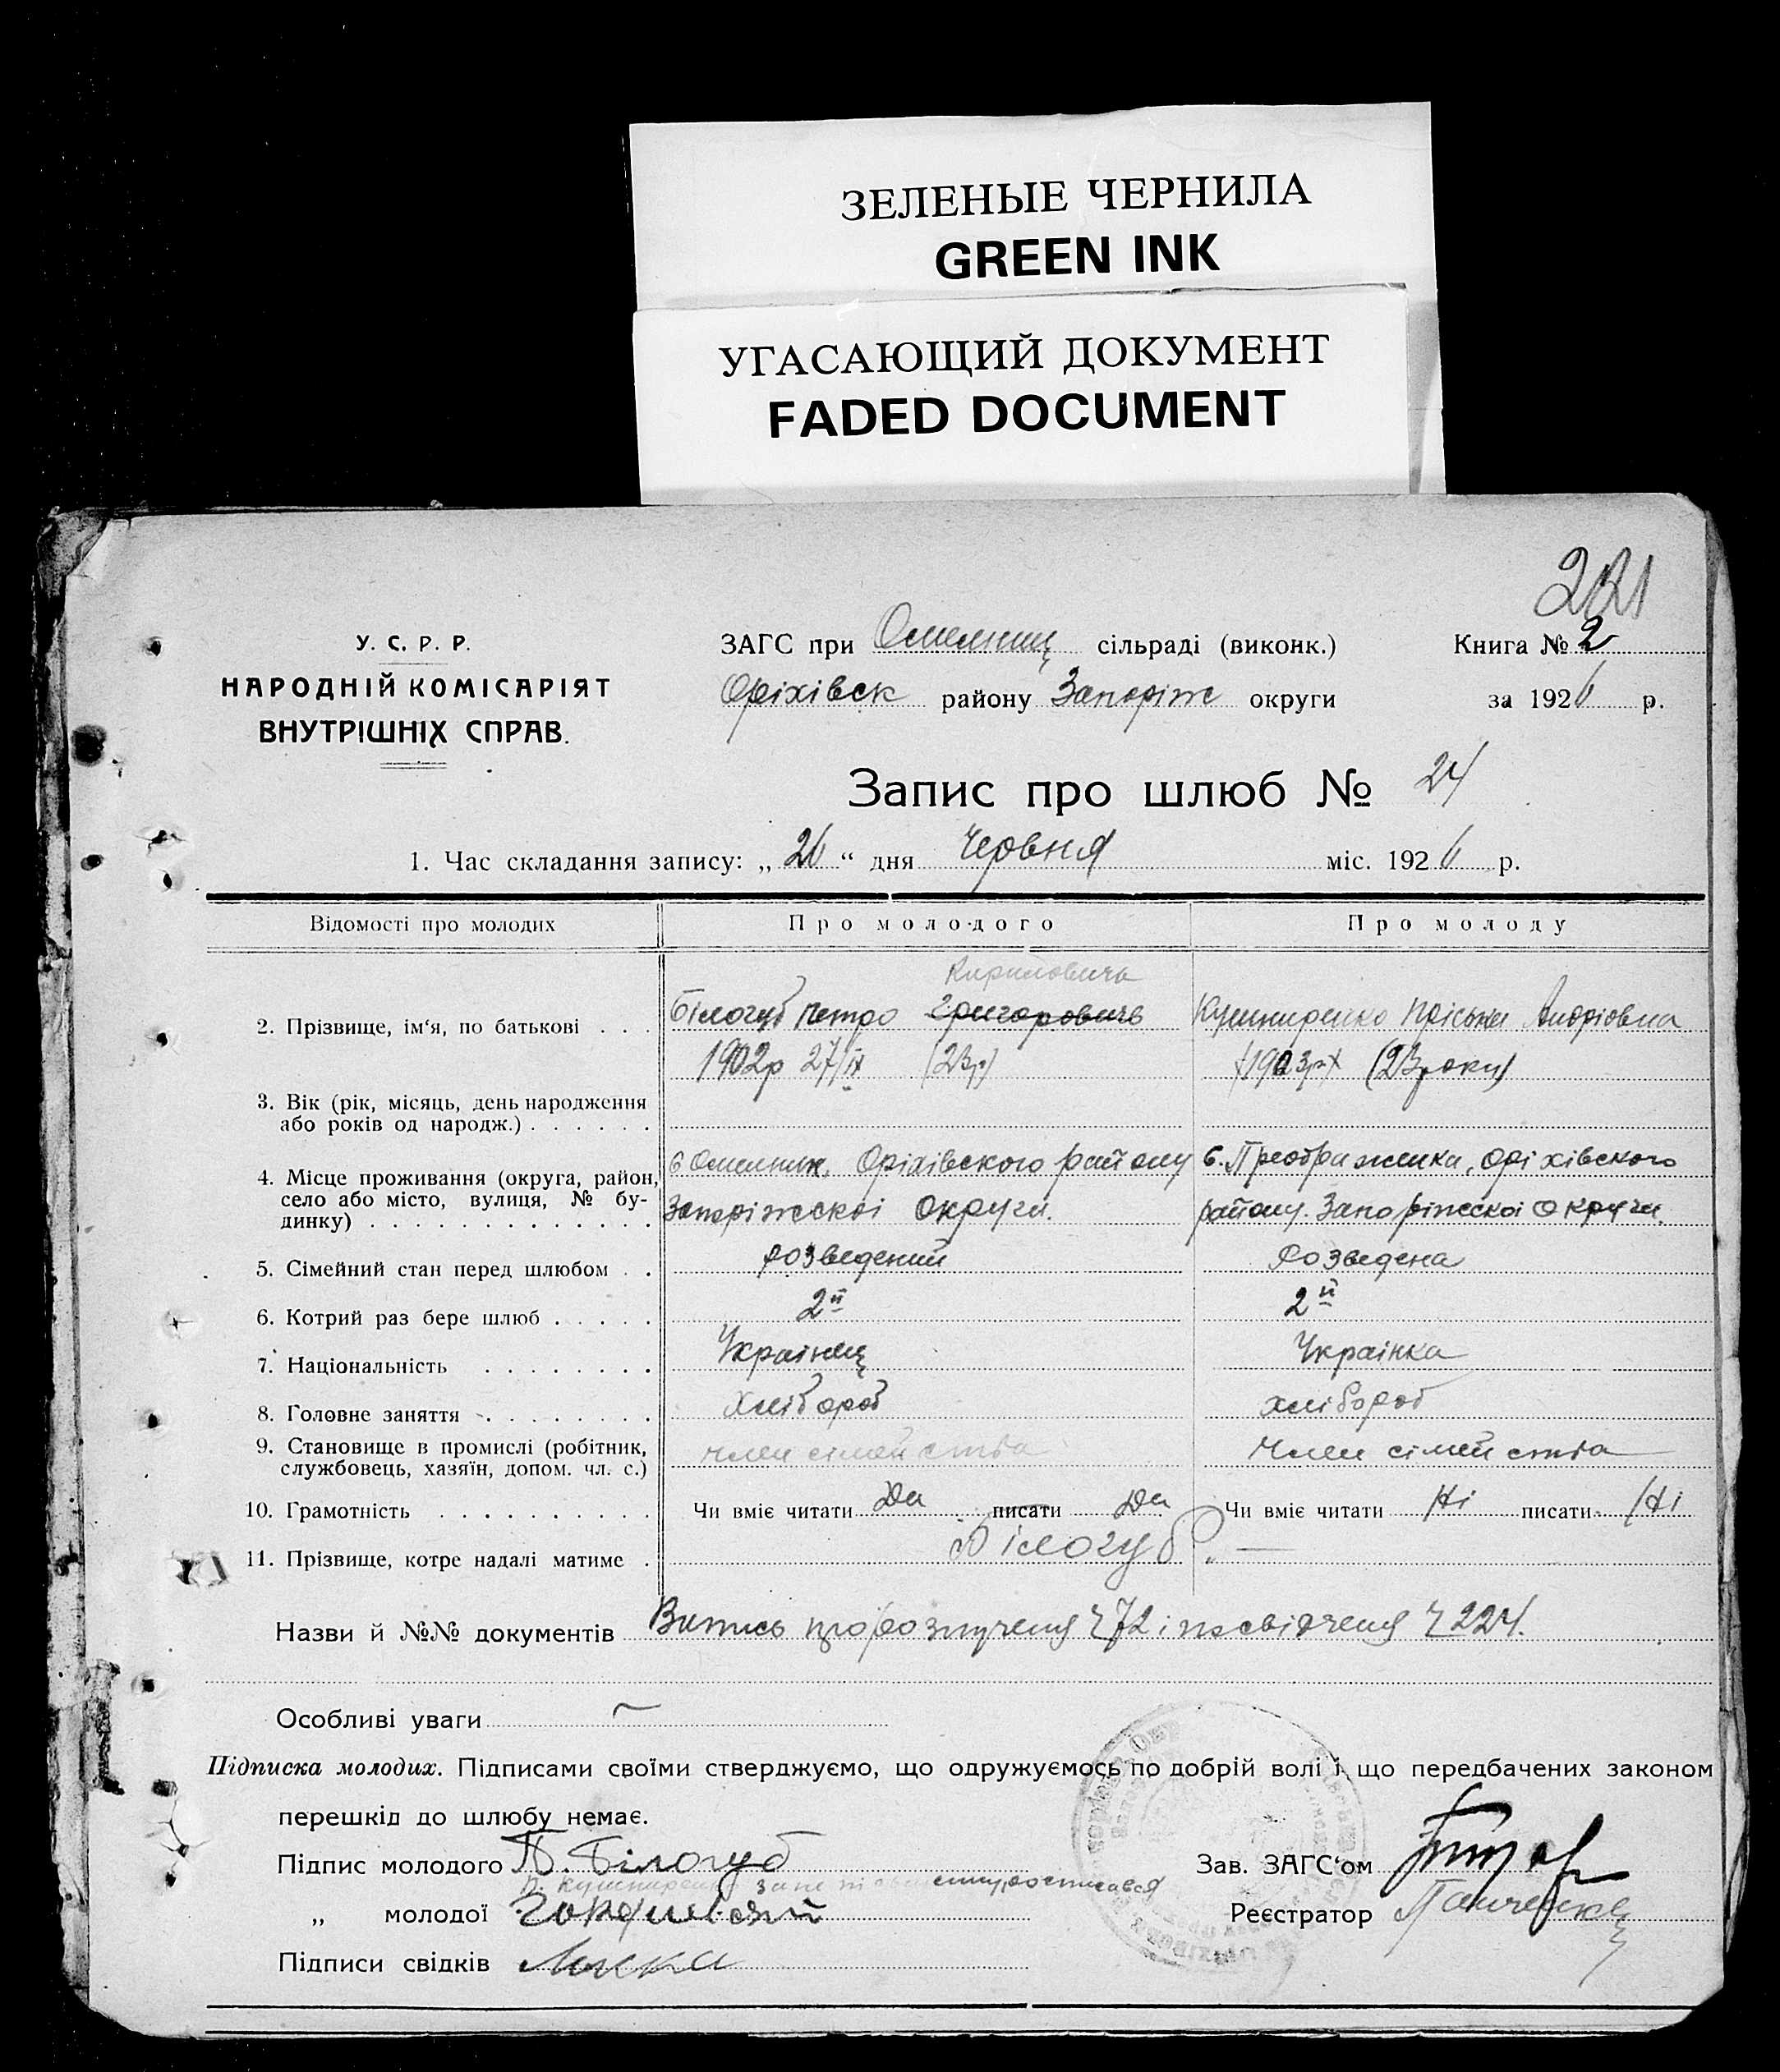 ЗЕЛЕНЫЕ ЧЕРНИЛА
GREEN INK
УГАСАЮЩИЙ ДОКУМЕНТ
FADED DOCUMENT
У. С. Р. Р.
НАРОДНІЙ КОМІСАРІЯТ
ВНУТРІШНІХ СПРАВ.
ЗАГС при Омельниц сільраді (виконк.) Книга № 2
Оріхівск району Запоріж округи за 1926 р.
Запис про шлюб № 24
1. Час складання запису: „ 26 “ дня Червня міс. 1926 р.
Відомості про молодих Про молодого Про молоду
Кириловича
2. Прізвище, ім‘я, по батькові . . . Білогуб Петро Григорович Кушниренко Пріська Андріовна
1902р 27/IX (23р) (1903р) (23роки)
3. Вік (рік, місяць, день народження
або років од народж.) . . . . . .
4. Місце проживання (округа, район, с Омельник, Оріхівского району с. Преображенка, Оріхівского
село або місто, вулиця, № бу-
динку) . . . . . . . . . . . . . Запоріжскоі Округи. району. Запоріжскоі Округи.
5. Сімейний стан перед шлюбом . . розведений розведена
6. Котрий раз бере шлюб . . . . . 2й 2й
7. Національність . . . . . . . Украінец Украінка
8. Головне заняття . . . . . . . . Хлібороб хлібороб
9. Становище в промислі (робітник,
службовець, хазяїн, допом. чл. с.) член сімейства член сімейства
10. Грамотність . . . . . . . . . . Чи вміє читати Да писати Да Чи вміє читати Ні писати Ні
11. Прізвище, котре надалі матиме . Білогуб. —
Назви й №№ документів Випись про розлученя Ч 72 і посвідченя Ч 224.
Особливі уваги
Підписка молодих. Підписами своїми стверджуємо, що одружуємось по добрій волі і що передбачених законом
перешкід до шлюбу немає.
Підпис молодого П. Білогуб Зав. ЗАГС‘ом
„ молодої Реєстратор Панченко
Підписи свідків